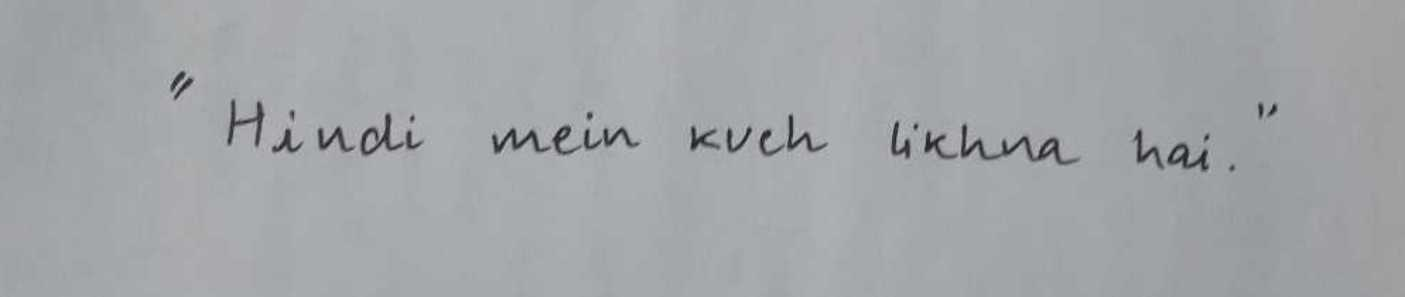 "Hindi mein kuch likhna hai."